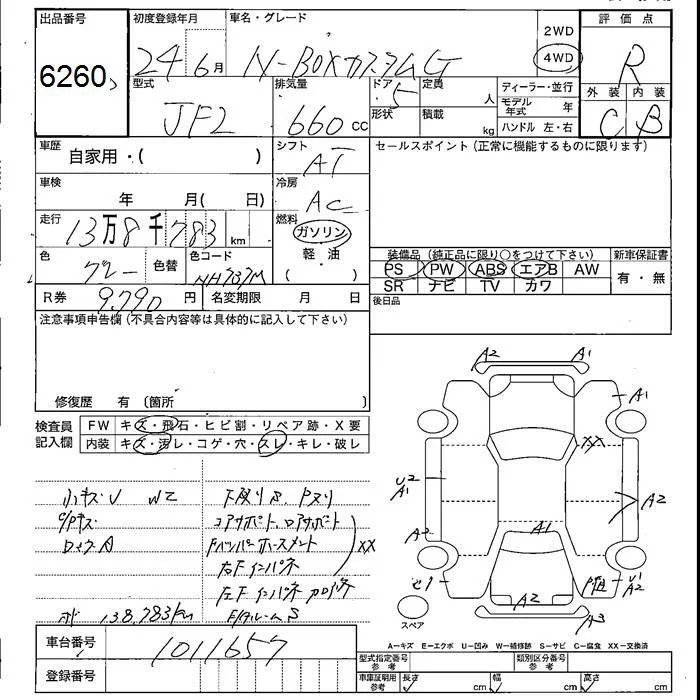 出品番号 初度登録年月 車名・グレード 評価点
6260 24年 6月 N-BOXカスタムG 2WD 4WD R
型式 排気量 ドア 定員 ディーラー・並行 外装 内装
JF2 660cc 5 人 モデル年式 年 C B
形状 積載 kg ハンドル 左・右
車歴 自家用・( ) シフト AT セールスポイント(正常に機能するものに限ります)
車検 年 月( 日) 冷房 AC
走行 13万8千783km 燃料 ガソリン
軽油
( )
色 グレー 色替 色コード NH737M
装備品(純正品に限り○をつけて下さい) 新車保証書
PS PW ABS エアB AW 有・無
SR ナビ TV カワ
R券 9.790円 名変期限 月 日 後日品
注意事項申告欄(不具合内容等は具体的に記入して下さい)
修復歴 有(箇所 )
検査員記入欄 FW キズ・飛石・ヒビ割・リペア跡・X要
内装 キズ・汚レ・コゲ・穴・スレ・キレ・破レ
A2 A1
A1
XX
U2
A1
A2
A2
A1
A2
U1
A2
A2
A3
スペア
小キズU WZ
コアサポート、ロアサポート
Fバンパーホースメント XX
右Fインパネ
138,783km
車台番号 1011657
登録番号
A-キズ E-エクボ U-凹み W-補修跡 S-サビ C-腐食 XX-交換済
型式指定番号参考 類別区分番号参考
車庫証明用参考 長さ cm 幅 cm 高さ cm